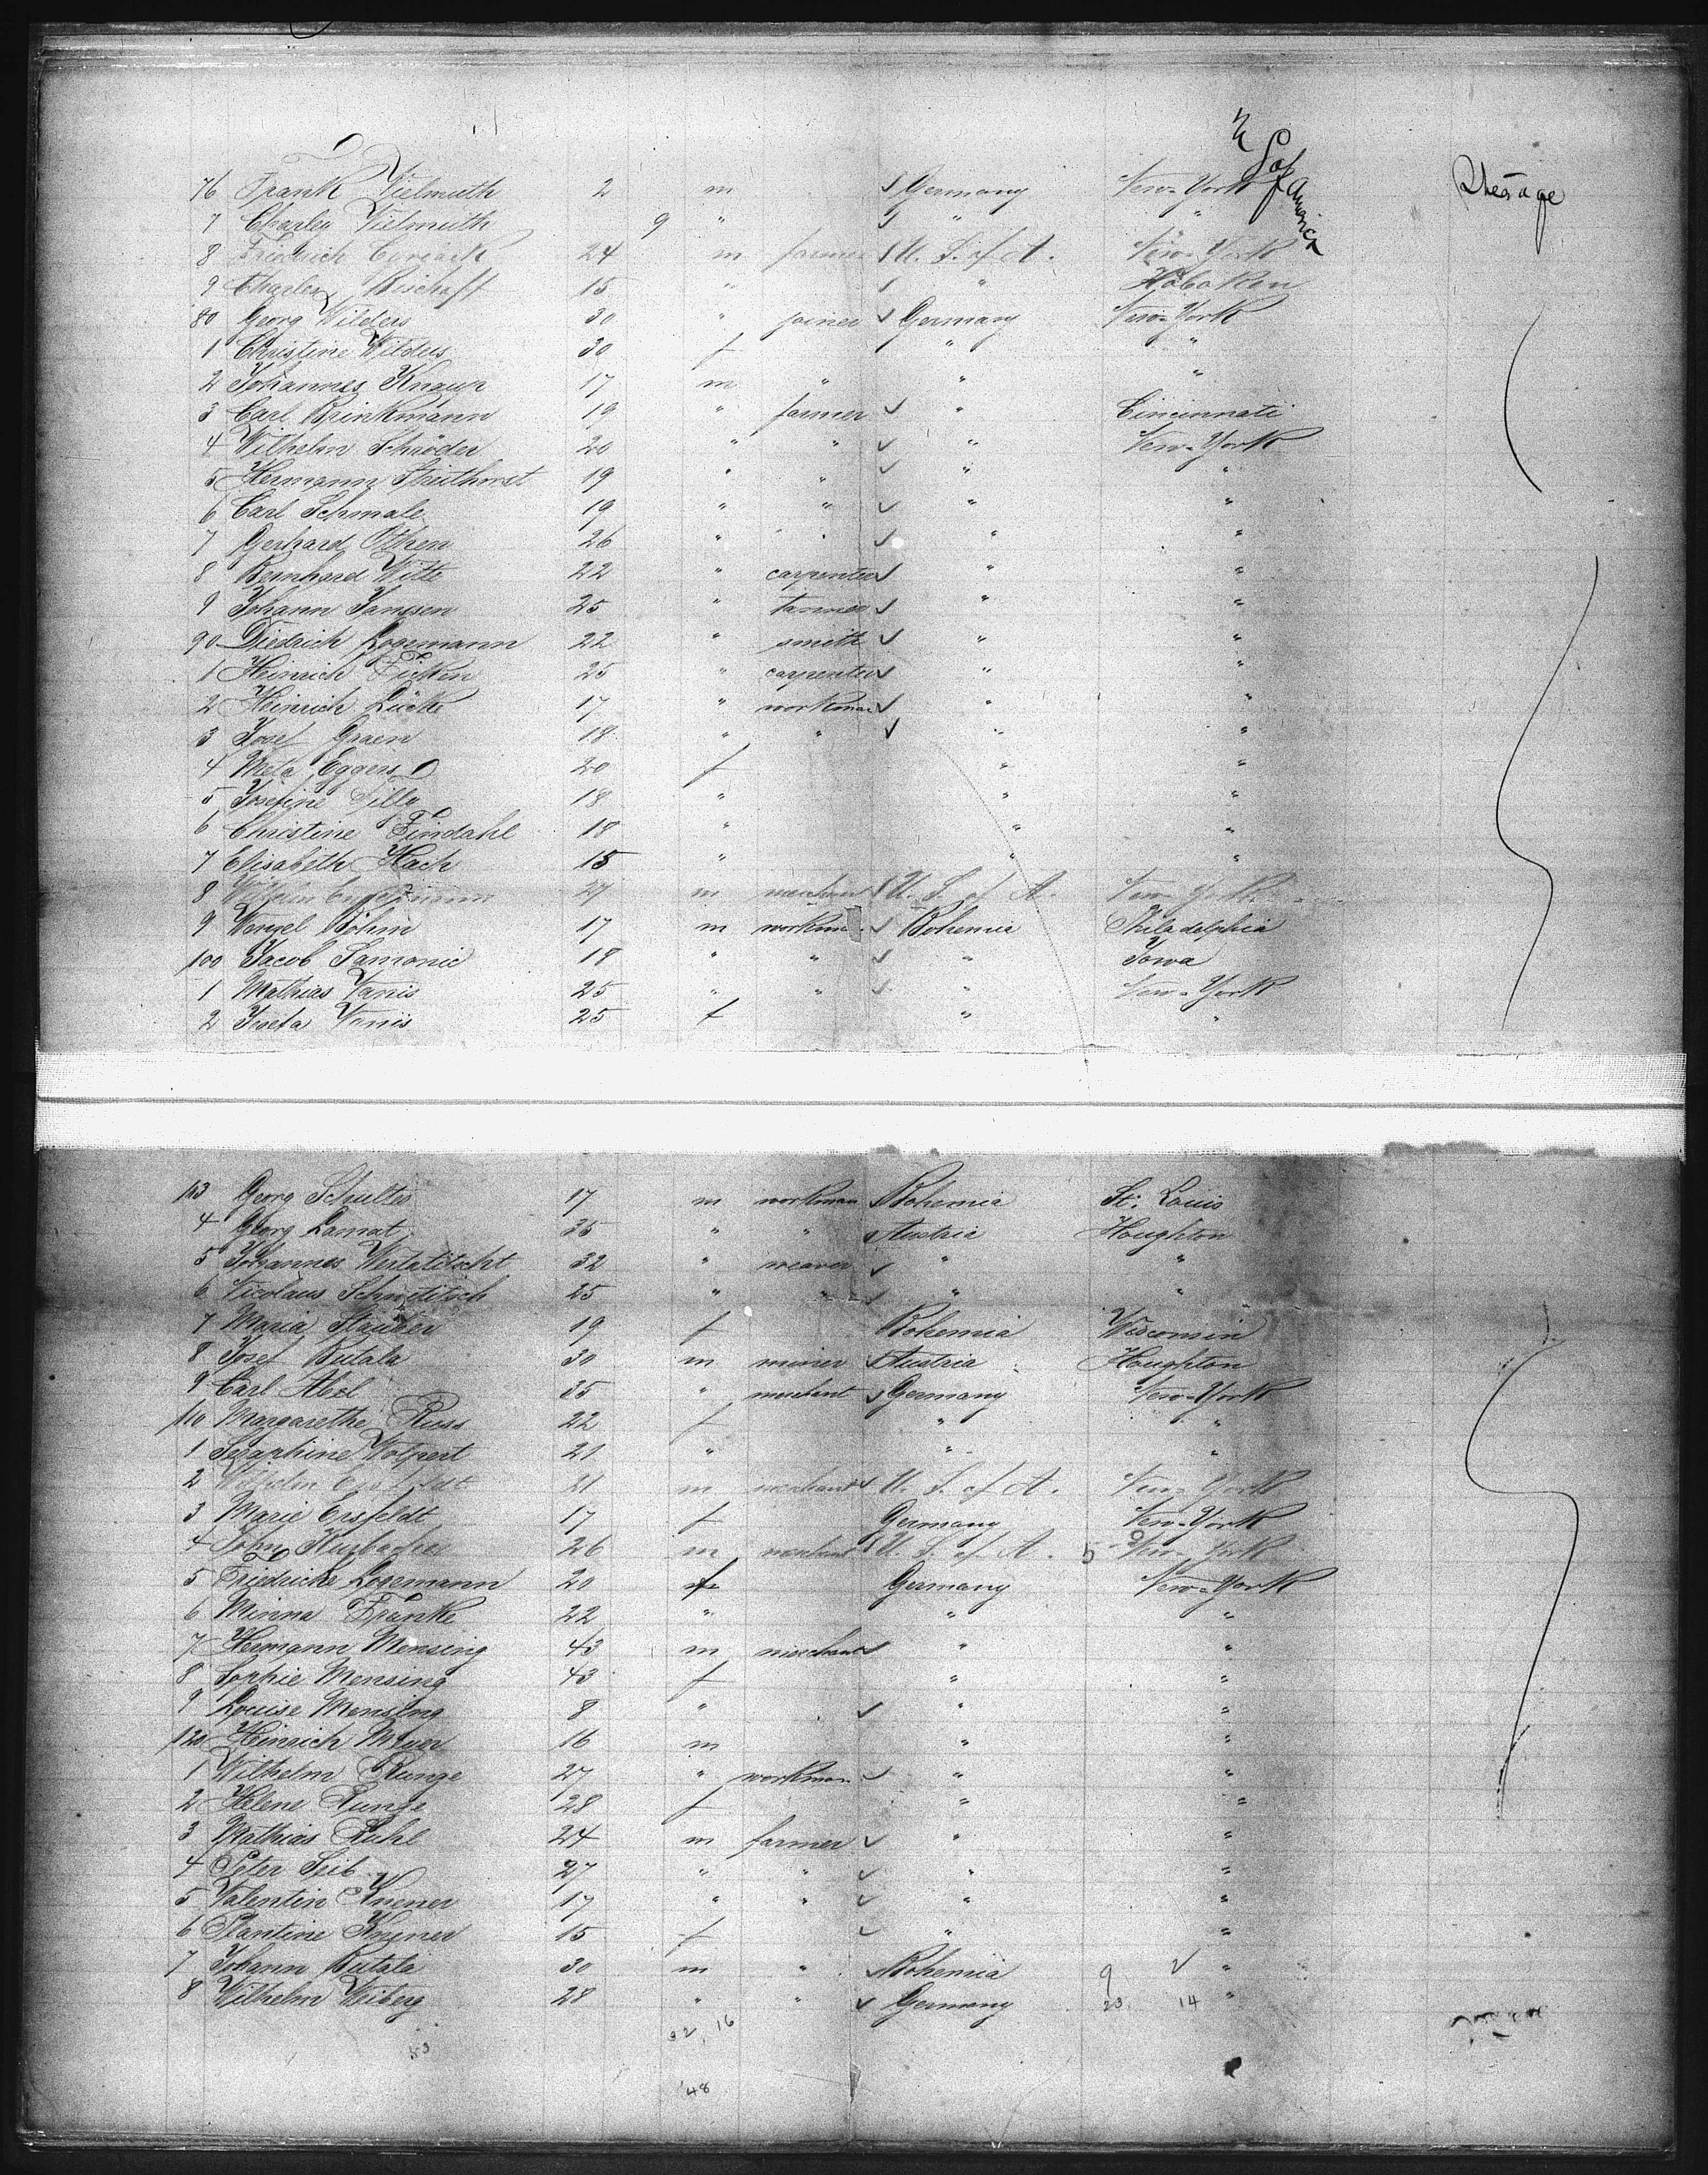 U S of America
76 Frank Vielmuth 2 m Germany New-York Steerage
7 Charley Vielmuth 9 " " "
8 Friedrich 24 m farmer U. S. of A. New-York
9 Charles Bischoff 15 " " Hoboken
80 Georg Wilders 30 " joiner Germany New-York
1 Christine Wilders 30 f " "
2 Johannes Knaur 17 m " " "
3 Carl Brinkmann 19 " farmer " Cincinnati
4 Wilhelm Schröder 20 " " " New-York
5 Hermann Struthorst 19 " " " "
6 Carl Schmale 19 " " " "
7 Gerhard Othen 26 " " " "
8 Bernhard Witte 22 " carpenter " "
9 Johann Janssen 25 " farmer " "
90 Diedrich Logemann 22 " smith " "
1 Heinrich Ficken 25 " carpenter " "
2 Heinrich Lücke 17 " workman " "
3 Josef Graen 18 " " " "
4 Meta Eggers 20 f " "
5 Josefine Tilly 18 " " "
6 Christine Findahl 18 " " "
7 Elisabeth Hach 15 " " "
8 Wilhelm 27 m merchant U. S. of A. New-York
9 Wenzel Böhm 17 m workman Bohemia Philadelphia
100 Jacob Samonic 18 " " " Iowa
1 Mathias Vanis 25 " " " New-York
2 Josefa Vanis 25 f " "
103 Georg Schultes 17 m workman Bohemia St. Louis
4 Georg Lamat 35 " " Austria Houghton
5 Johannes Wertatitscht 32 " weaver " "
6 Nicolaus Schneditsch 25 " " " "
7 Maria Stauber 19 f Bohemia Wisconsin
8 Josef Butala 30 m miner Austria Houghton
9 Carl Abel 35 " merchant Germany New-York
110 Margarethe Russ 22 f " "
1 Seraphine Wolpert 21 " " "
2 Wilhelm Ersfeldt 21 m merchant U. S. of A. New-York
3 Marie Ersfeldt 17 f Germany New-York
4 John 26 m merchant U. S. of A. 5 New-York
5 Friedricke Logemann 20 f Germany New-York
6 Minna Franke 22 " " "
7 Hermann Mensing 43 m merchant " "
8 Sophie Mensing 43 f " "
9 Louise Mensing 8 " " "
120 Heinrich Meyer 16 m " "
1 Wilhelm Runge 27 " workman " "
2 Helene Runge 28 f " "
3 Mathias Ruhl 24 m farmer " "
4 Peter Seib 27 " " " "
5 Valentin Knener 17 " " " "
6 Plantine Knener 15 f " "
7 Johann Butala 30 m " Bohemia 9 2 "
8 Wilhelm Weiberg 28 " " Germany 23 14 "
32, 16
48